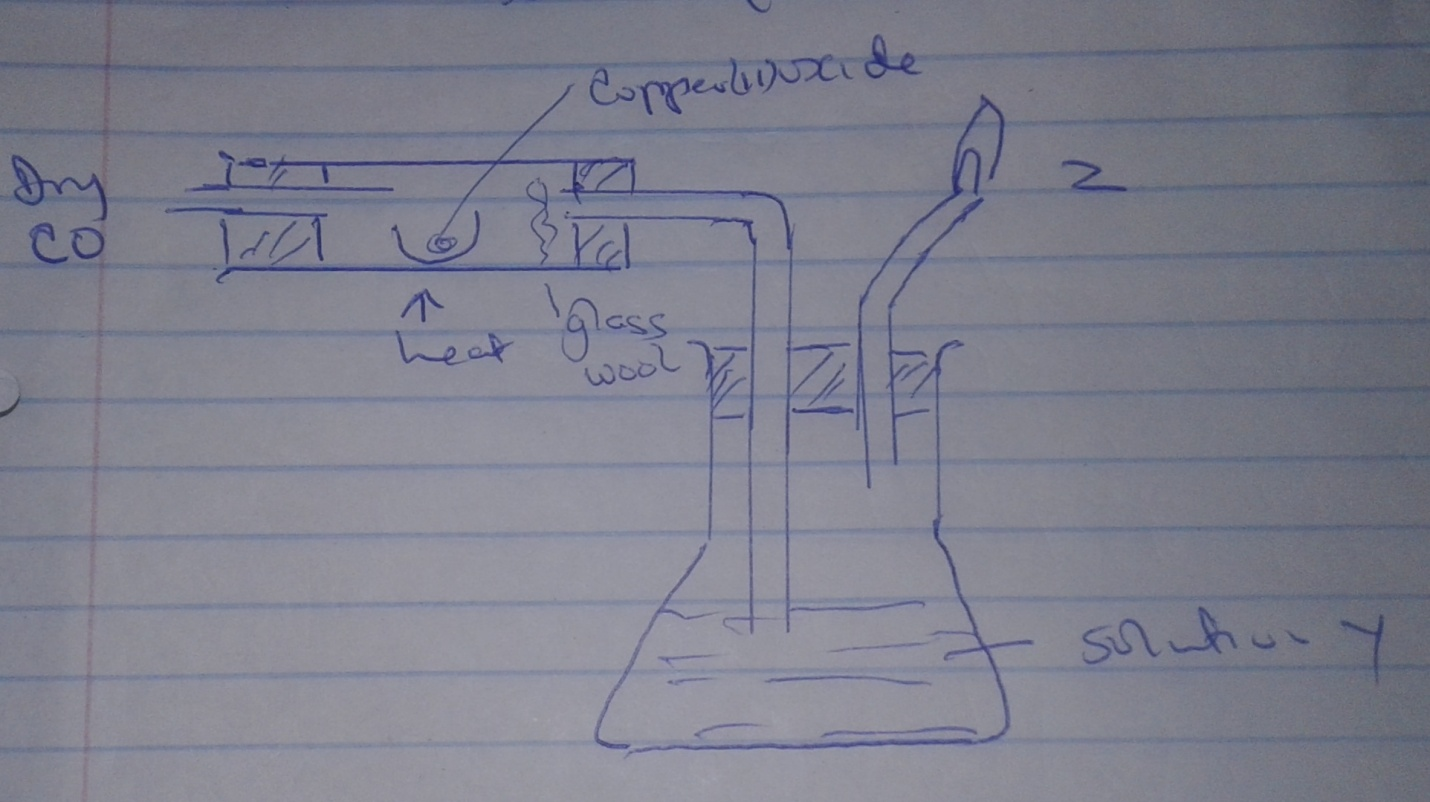 Copper(II)oxide
Dry
CO
Z
heat
glass
wool
solution Y